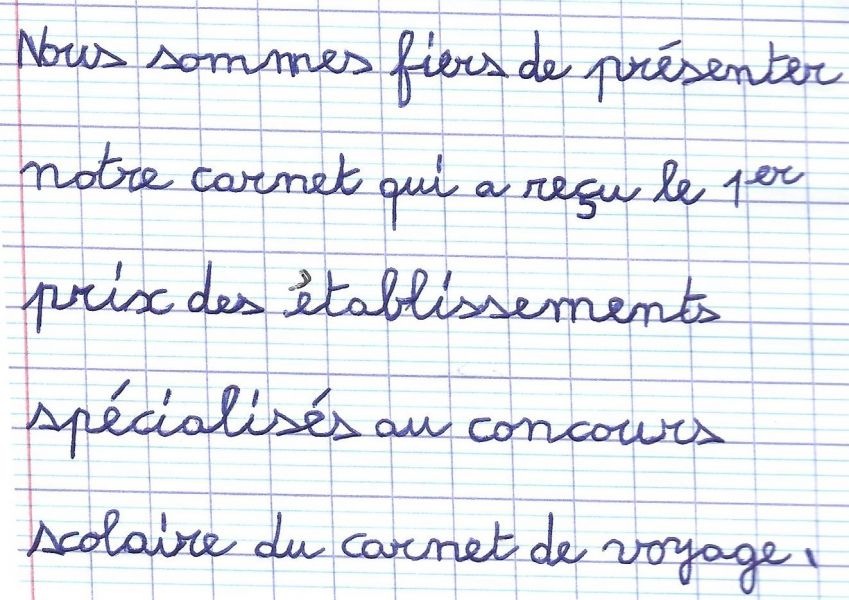 Nous sommes fiers de présenter
notre carnet qui a reçu le 1er
prix des établissements
spécialisés au concours
scolaire du carnet de voyage.